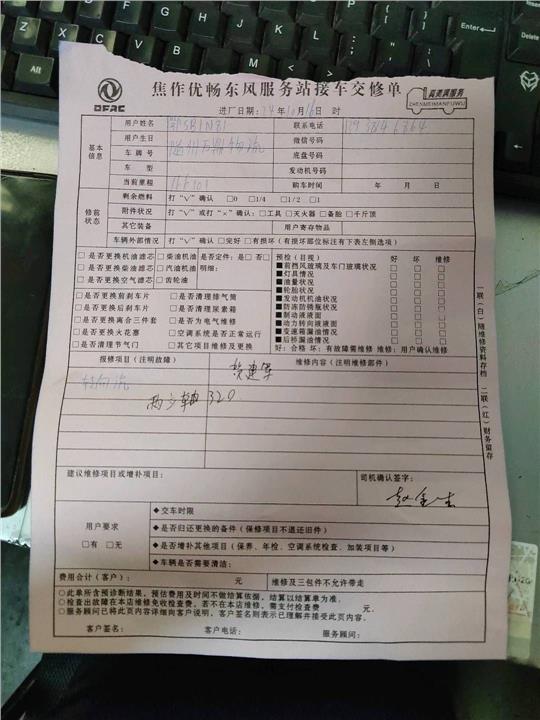 DFAC
焦作优畅东风服务站接车交修单
真美满服务
ZHENMEIMANFUWU
进厂日期: 24年10月16日 时
基本信息
用户姓名
联系电话
用户生日
微信号码
车牌号
底盘号码
车 型
发动机号
当前里程
购车时间 年 月 日
修前状态
剩余燃料 打“√”确认 □0 □1/4 □1/2 □1
附件状况 打“√”或打“×”确认: □工具 □灭火器 □备胎 □千斤顶
其它装备 用户寄存物品
车辆外部情况 打“√”确认 □完好 □有损坏(有损坏部位标注有下表左侧选项)
□是否更换机油滤芯 □柴油机油 是否定件: 是□ 否□
□是否更换柴油滤芯 □汽油机油 明细:
□是否更换空气滤芯 □齿轮油
□是否更换前刹车片 □是否清理排气筒
□是否更换后刹车片 □是否清理尿素箱
□是否更换离合三件套 □是否为电气维修
□是否更换火花塞 □空调系统是否正常运行
□是否清理节气门 □其它项目维修及更换
预检(目视) 好 坏 维修
■前挡风玻璃及车门玻璃状况 □ □ □
■灯具情况 □ □ □
■油量状况 □ □ □
■轮胎状况 □ □ □
■发动机机油状况 □ □ □
■防冻防锈瓶状况 □ □ □
■制动液液面 □ □ □
■动力转向液液面 □ □ □
■变速箱漏油情况 □ □ □
■后桥漏油情况 □ □ □
好: 合格 坏: 有故障需维修 维修: 用户确认维修
报修项目(注明故障)
维修内容(注明维修部件)
320
建议维修项目或增补项目:
司机确认签字:
用户要求
□有 □无
◆交车时限
◆是否归还更换的备件(保修项目不退还旧件)
◆是否增补其他项目(保养、年检、空调系统检查、加装项目等)
◆车辆是否需要清洁:
费用合计(客户): 元 维修及三包件不允许带走
○此单所含预诊断结果,预估费用及时间不做结算依据,结算以结算单为准.
○检查出故障在本店维修免收检查费,若不在本店维修,需支付检查费 元.
○服务顾问已将此页内容详细向客户说明,客户签名则表示已理解并接受此页内容.
客户签名: 客户电话: 服务顾问:
一联(白)随维修资料存档 二联(红)财务留存